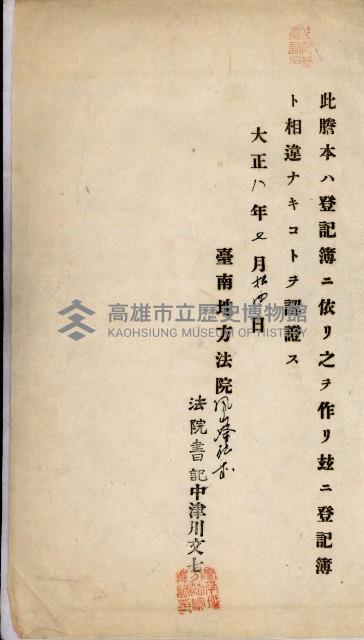 此謄本ハ登記簿ニ依リ之ヲ作リ玆ニ登記簿
ト相違ナキコトヲ認證ス
大正八年七月拾四日
臺南地方法院鳳山登記所
法院書記中津川文七
高雄市立歷史博物館
KAOHSIUNG MUSEUM OF HISTORY